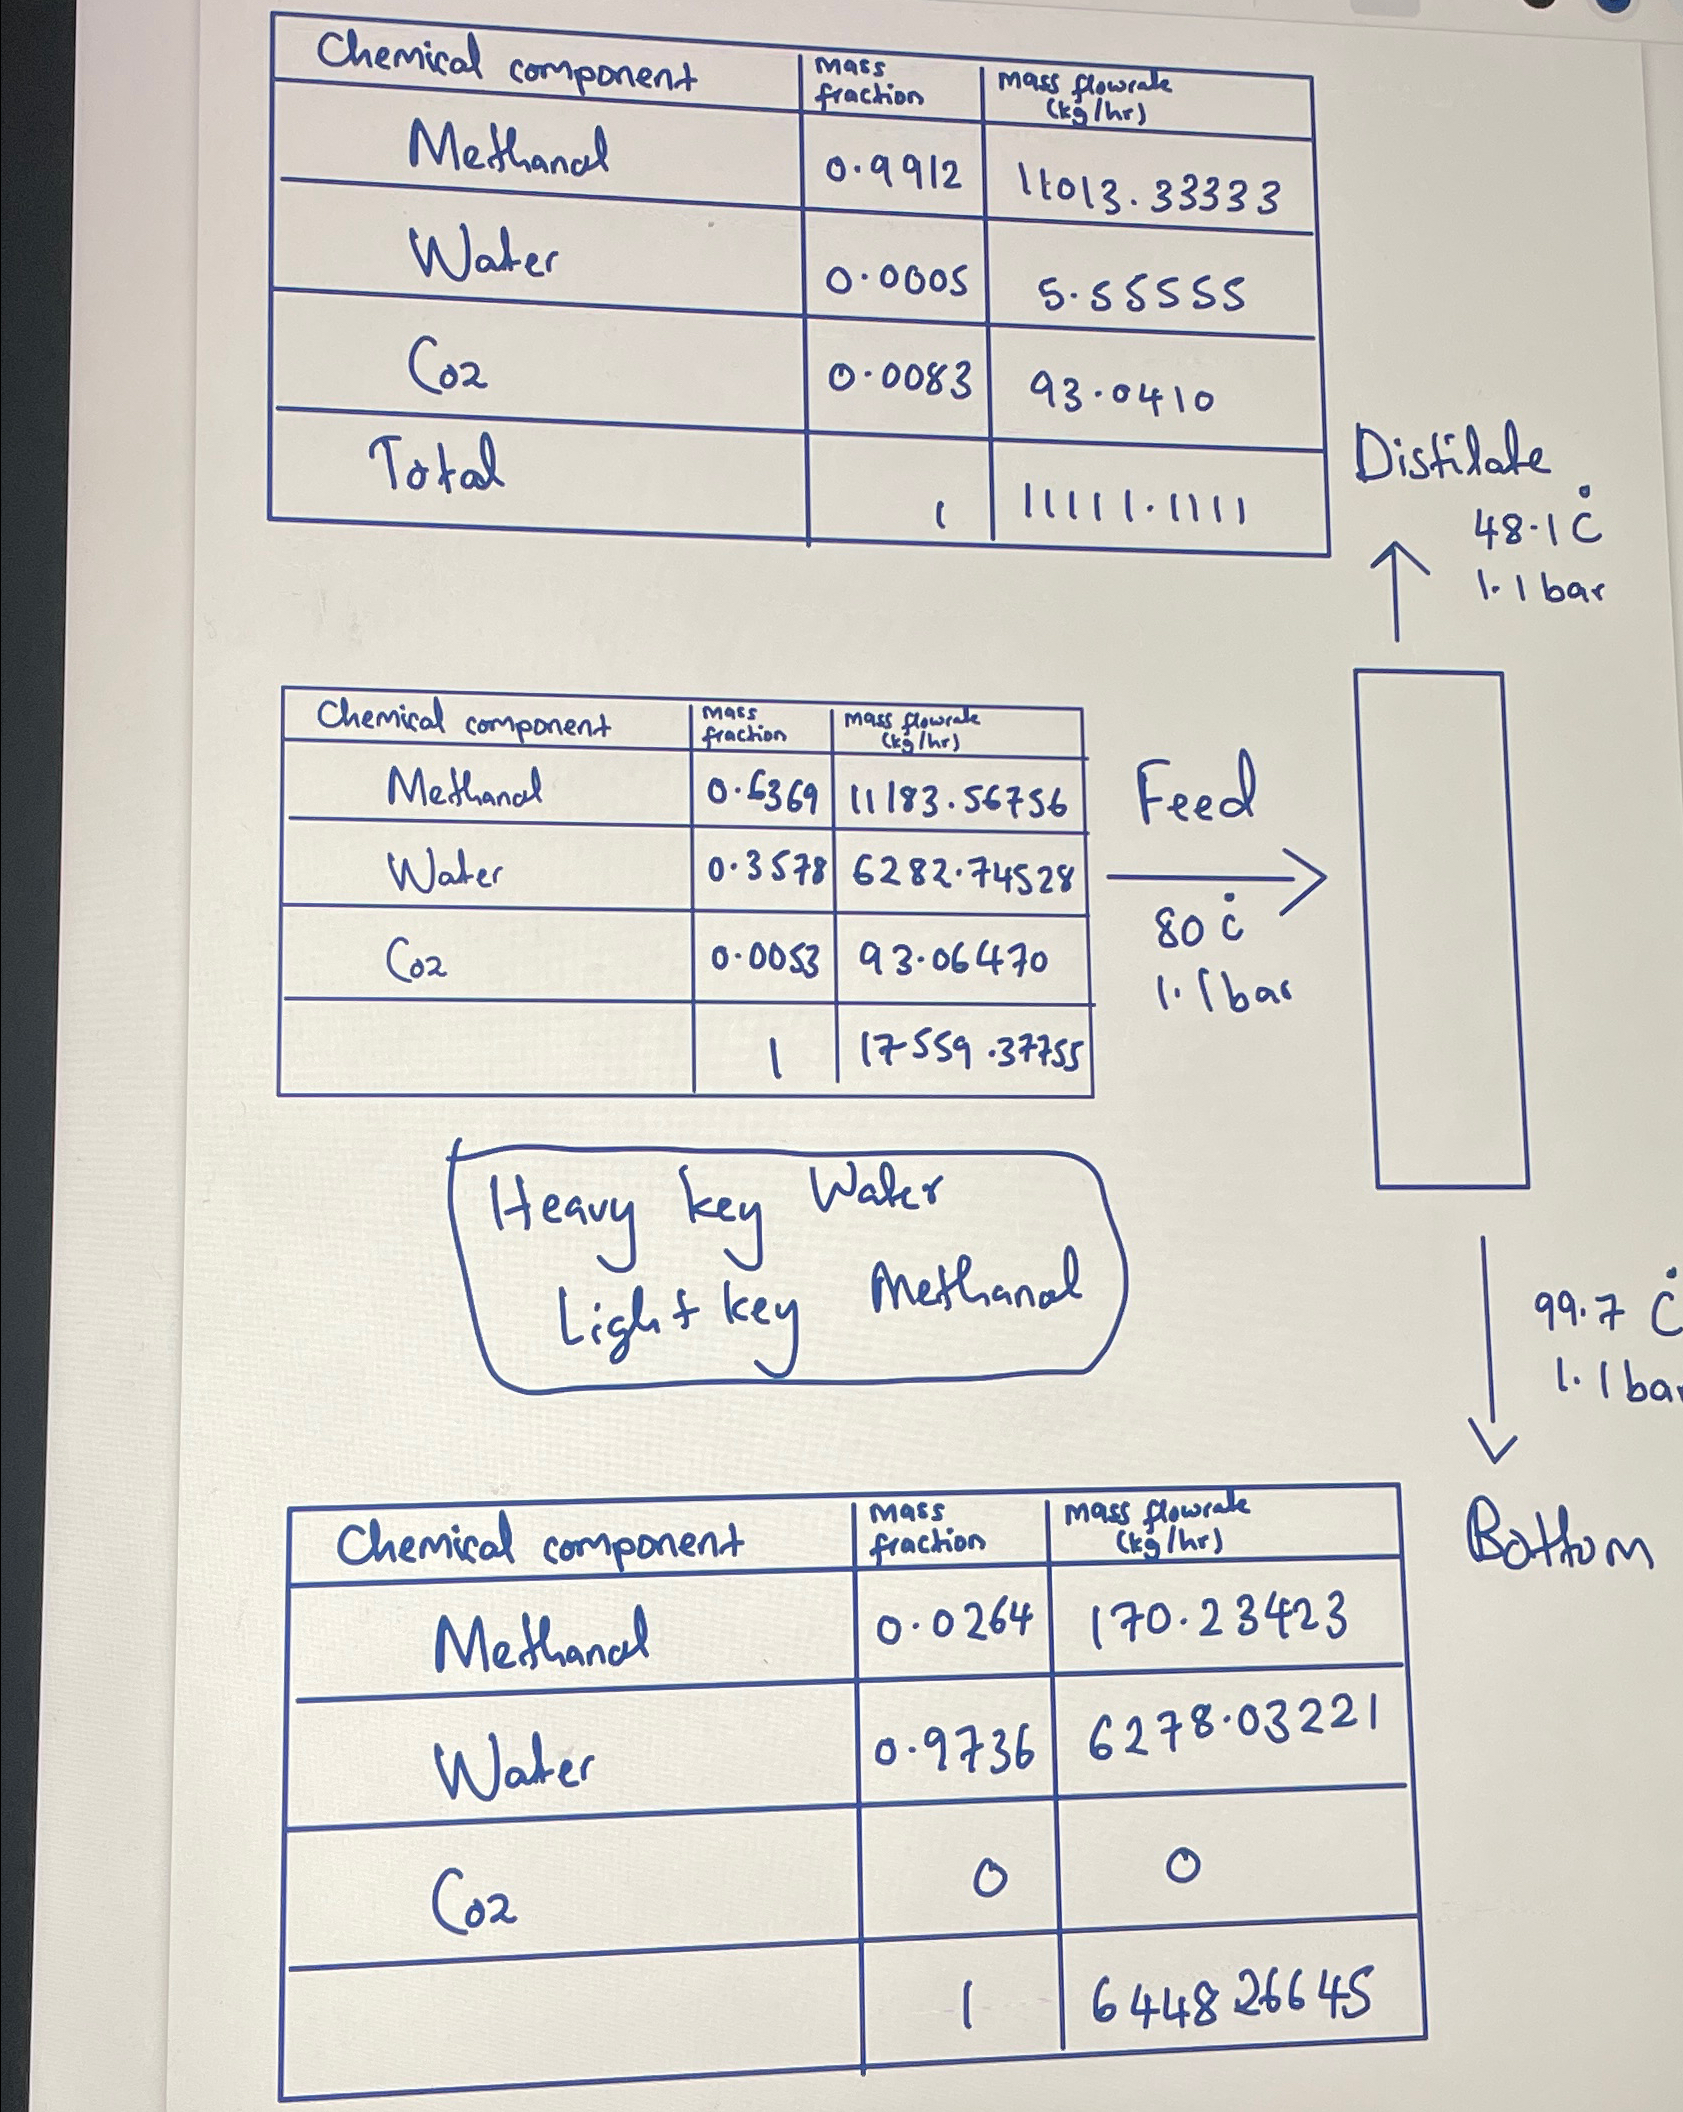 Chemical component mass fraction mass flowrate (kg/hr)
Methanol 0.9912 11013.33333
Water 0.0005 5.55555
Co2 0.0083 93.0410
Total 1 11111.1111
Distilate
48.1 °C
1.1 bar
Chemical component mass fraction mass flowrate (kg/hr)
Methanol 0.6369 11183.56756
Water 0.3578 6282.74528
Co2 0.0053 93.06470
1 17559.37755
Feed
80 °C
1.1 bar
Heavy key Water
Light key Methanol
99.7 °C
1.1 bar
Bottom
Chemical component mass fraction mass flowrate (kg/hr)
Methanol 0.0264 170.23423
Water 0.9736 6278.03221
Co2 0 0
1 6448 26645